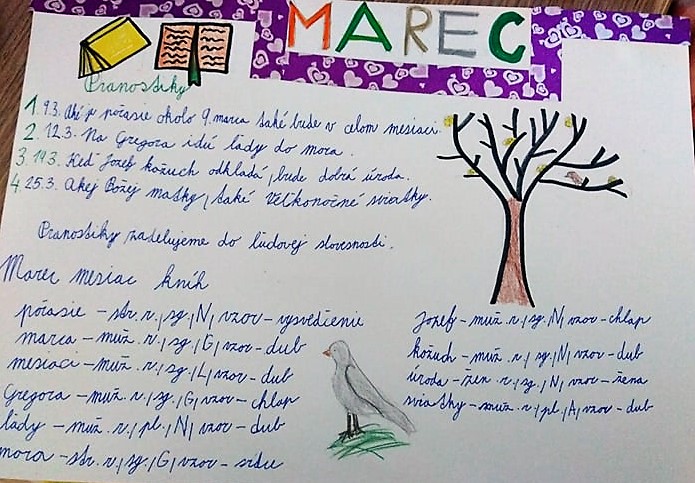 MAREC
Pranostiky
1. 9.3. Aké je počasie okolo 9. marca také bude v celom mesiaci.
2. 12.3. Na Gregora idú ľady do mora.
3. 19.3. Keď Jozef kožuch odkladá, bude dobrá úroda.
4. 25.3. Akej Božej matky, také Veľkonočné sviatky.
Pranostiky zadeľujeme do ľudovej slovesnosti.
Marec mesiac kníh
počasie - str. r., sg., N, vzor - vysvedčenie
marca - muž. r., sg., G, vzor - dub
mesiaci - muž. r., sg., L, vzor - dub
Gregora - muž. r., sg., G, vzor - chlap
ľady - muž. r., pl., N, vzor - dub
mora - str. r., sg., G, vzor - srdce
Jozef - muž. r., sg., N, vzor - chlap
kožuch - muž. r., sg., N, vzor - dub
úroda - žen. r., sg., N, vzor - žena
sviatky - muž. r., pl., A, vzor - dub